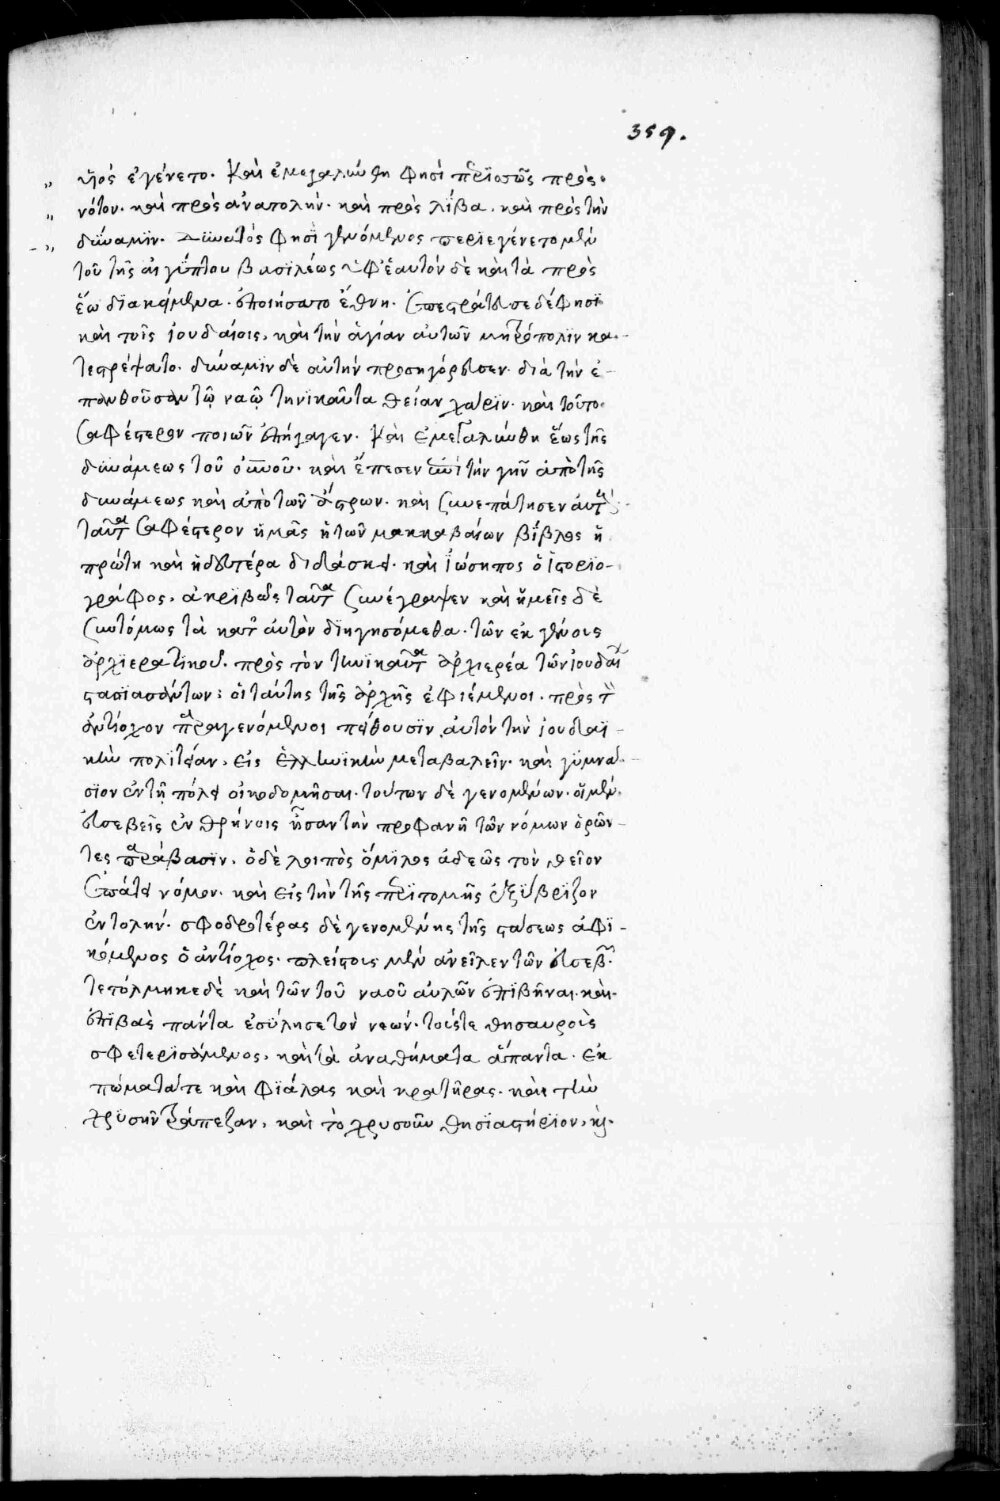 359.
υἱὸς ἐγένετο. Καὶ ἐμεγαλύνθη φησὶ περισσῶς πρὸς
νότον. καὶ πρὸς ἀνατολήν. καὶ πρὸς λίβα. καὶ πρὸς τὴν
δύναμιν. Δυνατὸς φησὶ γενόμενος περιεγένετο μὲν
τοῦ τῆς αἰγύπτου βασιλέως ὑφ' ἑαυτὸν δὲ καὶ τὰ πρὸς
ἕω διακείμενα. ἐποιήσατο ἔθνη. ἐπεστράτευσε δέ φησι
καὶ τοῖς ἰουδαίοις, καὶ τὴν ἁγίαν αὐτῶν μητρόπολιν κα-
τεστρέψατο. δύναμιν δὲ αὐτὴν προσηγόρευσεν διὰ τὴν ἐ-
πανθοῦσαν τῷ ναῷ τηνικαῦτα θείαν χάριν. καὶ τοῦτο
σαφέστερον ποιῶν ἐπήγαγεν. Καὶ ἐμεγαλύνθη ἕως τῆς
δυνάμεως τοῦ οὐνοῦ. καὶ ἔπεσεν ἐπὶ τὴν γῆν ἀπὸ τῆς
δυνάμεως καὶ ἀπὸ τῶν ἄστρων. καὶ συνεπάτησεν αὐτά.
ταῦτα σαφέστερον ἡμᾶς ἡ τῶν μακκαβαίων βίβλος ἡ
πρώτη καὶ ἡ δευτέρα διδάσκει. καὶ ἰώσηπος ὁ ἱστοριο-
γράφος, ἀκριβῶς ταῦτα συνέγραψεν καὶ ἡμεῖς δὲ
συντόμως τὰ κατ' αὐτὸν διηγησόμεθα. τῶν ἐκ γένους
ἀρχιερατικοῦ. πρὸς τὸν τηνικαῦτα ἀρχιερέα τῶν ἰουδαίων
στασιασάντων: οἱ ταύτης τῆς ἀρχῆς ἐφιέμενοι. πρὸς τὸν
ἀντίοχον παραγενόμενοι πείθουσιν αὐτὸν τὴν ἰουδαϊ-
κὴν πολιτείαν, εἰς ἑλληνικὴν μεταβαλεῖν. καὶ γυμνά-
σιον ἐν τῇ πόλει οἰκοδομῆσαι. τούτων δὲ γενομένων. οἱ μὲν
εὐσεβεῖς ἐν θρήνοις ἦσαν τὴν προφανῆ τῶν νόμων ὁρῶν-
τες παράβασιν. ὁ δὲ λοιπὸς ὅμιλος ἀδεῶς τὸν θεῖον
ἐπάτει νόμον. καὶ εἰς τὴν τῆς περιτομῆς ἐξύβριζον
ἐντολήν. σφοδροτέρας δὲ γενομένης τῆς στάσεως ἀφι-
κόμενος ὁ ἀντίοχος. πλείστους μὲν ἀνεῖλεν τῶν εὐσεβῶν.
τετόλμηκε δὲ καὶ τῶν τοῦ ναοῦ αὐλῶν ἐπιβῆναι. καὶ
ἐπιβὰς πάντα ἐσύλησε τὸν νεών. τούς τε θησαυροὺς
σφετερισάμενος, καὶ τὰ ἀναθήματα ἅπαντα. ἐκ
πώματά τε καὶ φιάλας καὶ κρατῆρας. καὶ τὴν
χρυσῆν τράπεζαν, καὶ τὸ χρυσοῦν θυσιαστήριον, καὶ